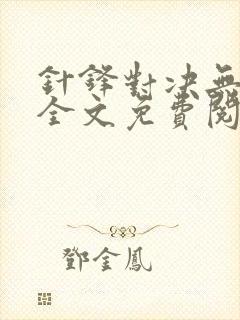 針鋒對决無
全文免費閱
鄧金鳳